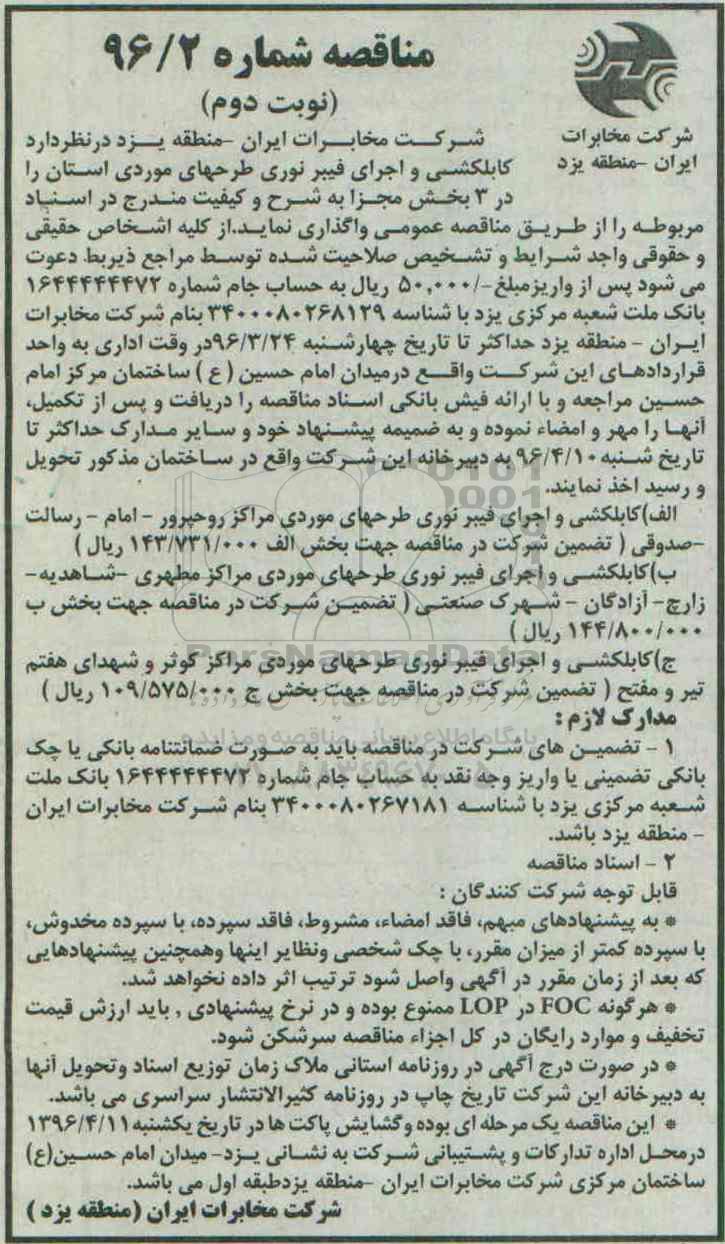 مناقصه شماره ۹۶/۲
(نوبت دوم)
شرکت مخابرات
ایران -منطقه یزد
شرکت مخابرات ایران -منطقه یزد درنظردارد
کابلکشی و اجرای فیبر نوری طرحهای موردی استان را
در ۳ بخش مجزا به شرح و کیفیت مندرج در اسناد
مربوطه را از طریق مناقصه عمومی واگذاری نماید.از کلیه اشخاص حقیقی
و حقوقی واجد شرایط و تشخیص صلاحیت شده توسط مراجع ذیربط دعوت
می شود پس از واریزمبلغ-/۵۰,۰۰۰ ریال به حساب جام شماره ۱۶۴۴۴۴۴۴۷۲
بانک ملت شعبه مرکزی یزد با شناسه ۳۴۰۰۰۸۰۲۶۸۱۲۹ بنام شرکت مخابرات
ایران - منطقه یزد حداکثر تا تاریخ چهارشنبه ۹۶/۳/۲۴در وقت اداری به واحد
قراردادهای این شرکت واقع درمیدان امام حسین ( ع ) ساختمان مرکز امام
حسین مراجعه و با ارائه فیش بانکی اسناد مناقصه را دریافت و پس از تکمیل،
آنها را مهر و امضاء نموده و به ضمیمه پیشنهاد خود و سایر مدارک حداکثر تا
تاریخ شنبه ۹۶/۴/۱۰ به دبیرخانه این شرکت واقع در ساختمان مذکور تحویل
و رسید اخذ نمایند.
الف)کابلکشی و اجرای فیبر نوری طرحهای موردی مراکز روحپرور - امام - رسالت
-صدوقی ( تضمین شرکت در مناقصه جهت بخش الف ۱۴۳/۷۳۱/۰۰۰ ریال )
ب)کابلکشی و اجرای فیبر نوری طرحهای موردی مراکز مطهری -شاهدیه-
زارچ- آزادگان - شهرک صنعتی ( تضمین شرکت در مناقصه جهت بخش ب
۱۴۴/۸۰۰/۰۰۰ ریال )
ج)کابلکشی و اجرای فیبر نوری طرحهای موردی مراکز کوثر و شهدای هفتم
تیر و مفتح ( تضمین شرکت در مناقصه جهت بخش ج ۱۰۹/۵۷۵/۰۰۰ ریال )
مدارک لازم :
۱ - تضمین های شرکت در مناقصه باید به صورت ضمانتنامه بانکی یا چک
بانکی تضمینی یا واریز وجه نقد به حساب جام شماره ۱۶۴۴۴۴۴۴۷۲ بانک ملت
شعبه مرکزی یزد با شناسه ۳۴۰۰۰۸۰۲۶۷۱۸۱ بنام شرکت مخابرات ایران
- منطقه یزد باشد.
۲ - اسناد مناقصه
قابل توجه شرکت کنندگان :
* به پیشنهادهای مبهم، فاقد امضاء، مشروط، فاقد سپرده، با سپرده مخدوش،
با سپرده کمتر از میزان مقرر، با چک شخصی ونظایر اینها وهمچنین پیشنهادهایی
که بعد از زمان مقرر در آگهی واصل شود ترتیب اثر داده نخواهد شد.
* هرگونه FOC در LOP ممنوع بوده و در نرخ پیشنهادی , باید ارزش قیمت
تخفیف و موارد رایگان در کل اجزاء مناقصه سرشکن شود.
* در صورت درج آگهی در روزنامه استانی ملاک زمان توزیع اسناد وتحویل آنها
به دبیرخانه این شرکت تاریخ چاپ در روزنامه کثیرالانتشار سراسری می باشد.
* این مناقصه یک مرحله ای بوده وگشایش پاکت ها در تاریخ یکشنبه ۱۳۹۶/۴/۱۱
درمحل اداره تدارکات و پشتیبانی شرکت به نشانی یزد- میدان امام حسین(ع)
ساختمان مرکزی شرکت مخابرات ایران -منطقه یزدطبقه اول می باشد.
شرکت مخابرات ایران (منطقه یزد )
ParsNamadData